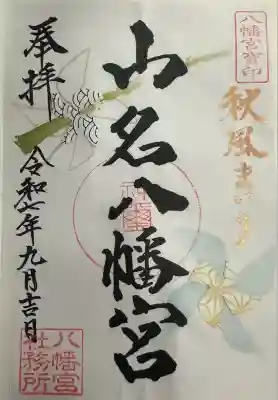 八幡宮寳印
秋風まつり
山名八幡宮
奉拝
令和六年九月吉日
八幡宮
社務所